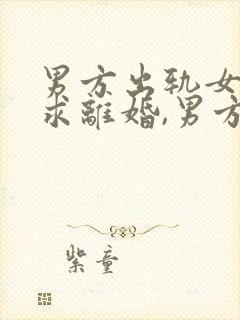 男方出轨女
求離婚,男方
紫童